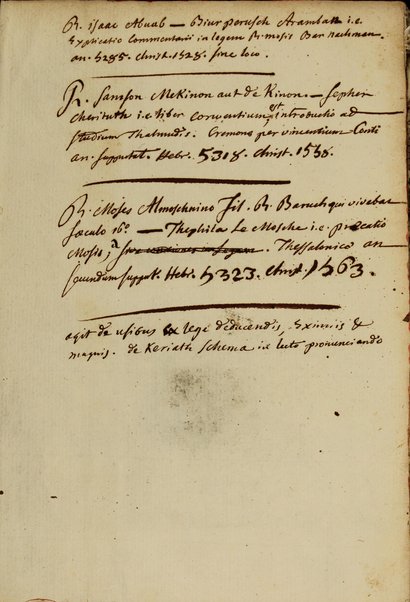 R. isaac Abuab — Biur perusch Aramban i.e.
Explicatio Commentarii in legem R. mosis Bar nachman.
an. 5285. christ. 1525. sine loco.
R. Samson Mekinon aut de Kinon. — Sepher
cherituth i.e. liber est introductio ad
studium Thalmudis. Cremonę per vincentium Conti
an. supputat. Hebr. 5318. christ. 1558.
R. Moses Almoschnino fil. R. Baruch qui vivebat
sæculo 16º — Thephila Le Mosche i.e. precatio
Mosis, Thessalonicæ an
secundum supput. Hebr. 5323. christ. 1563.
agit de usibus ex lege deducendis, Eximiis &
magnis. de Keriath Schema i.e. lecto pronunciando